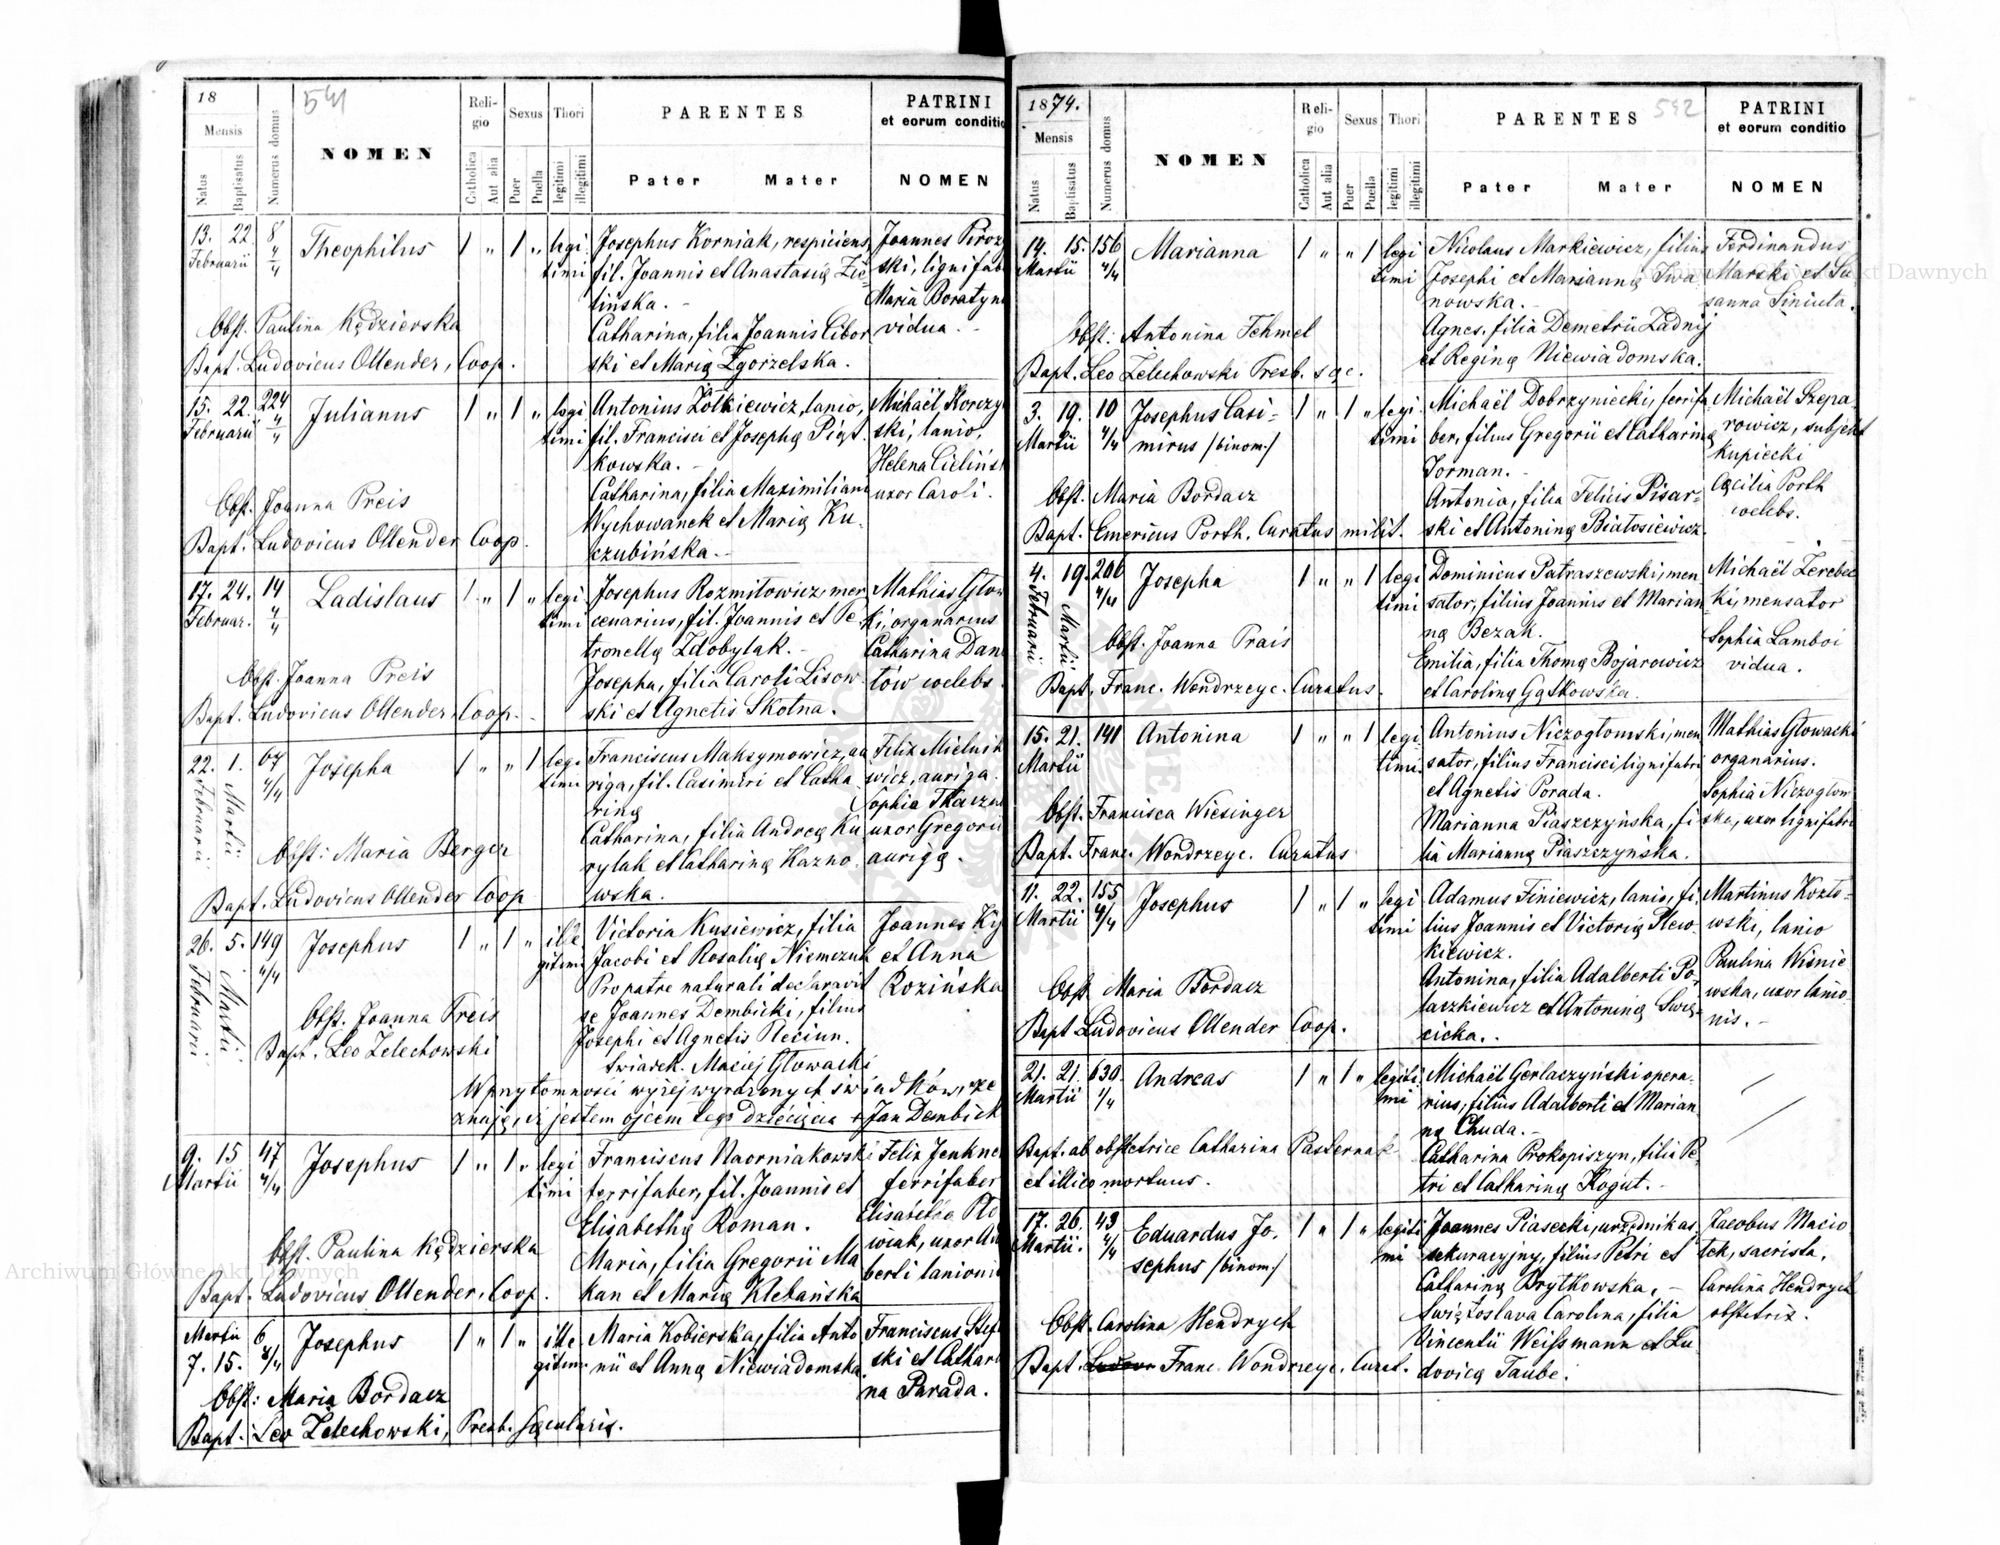 541
18
Mensis
Natus
Baptisatus
Numerus domus
NOMEN
Religio
Catholica
Aut alia
Sexus
Puer
Puella
Thori
legitimi
illegitimi
PARENTES
Pater Mater
PATRINI
et eorum conditio
NOMEN
13. 22. 8 4/4
Februarii
Theophilus
1 " 1 " legi
timi
Josephus Korniak, respiciens,
fil. Joannis et Anastasię Zie-
lińska. -
Catharina, filia Joannis Cibor
ski et Marię Zgorzelska.
Joannes Piroz
ski, lignifab
Maria Boratyn
vidua. -
Obst. Paulina Kędzierska
Bapt. Ludovicus Ollender, Coop.
15. 22. 224 4/4
Februarii
Julianus
1 " 1 " legi
timi
Antonius Żółkiewicz, lanio,
fil. Francisci et Josephę Piąt
kowska. -
Catharina, filia Maximiliani
Wychowanek et Marię Ku-
czubińska. -
Michaël Korczy
ski, lanio,
Helena Cielińs
uxor Caroli.
Obst. Joanna Preis
Bapt. Ludovicus Ollender Coop.
17. 24. 14 4/4
Februar.
Ladislaus
1 " 1 " legi
timi
Josephus Rozmiłowicz, mer
cenarius, fil. Joannis et Pe
tronellę Zdobylak. -
Josepha, filia Caroli Lisow
ski et Agnetis Skotna.
Mathias Głow
ki, organarius
Catharina Dani
tów coelebs.
Obst. Joanna Preis
Bapt. Ludovicus Ollender, Coop. -
22. 1. 67 4/4
Februarii
Martii
Josepha
1 " " 1 legi
timi
Franciscus Maksymowicz, au
riga, fil. Casimiri et Catha
rinę
Catharina, filia Andreę Ku
rylak et Catharinę Kazno
wska.
Felix Mielnik
wicz, auriga.
Sophia Tkaczu
uxor Gregorii
aurigę.
Obst: Maria Berger
Bapt. Ludovicus Ollender Coop
26. 5. 149 4/4
Februarii
Martii
Josephus
1 " 1 " ille
gitimi
Victoria Kusiewicz, filia
Jacobi et Rosalię Niemczuk
Pro patre naturali declaravit
se Joannes Dembicki, filius
Josephi et Agnetis Reciun.
Świadek. Maciej Głowacki
W przytomności wyżej wyrażonych świadków, ze
znaję, iż jestem ojcem tego dziecięcia + Jan Dembick
Joannes Ky
et Anna
Rozińska
Obst. Joanna Preis
Bapt. Leo Zelechowski
9. 15 47 4/4
Martii
Josephus
1 " 1 " legi
timi
Franciscus Naorniakowski
ferrifaber, fil. Joannis et
Elisabethę Roman.
Maria, filia Gregorii Ma
kan et Marię Klebańska
Felix Jenkne
ferrifaber
Elisabetha Plo
wiak, uxor Ad
berti lanionis
Obst. Paulina Kędzierska
Bapt. Ludovicus Ollender, Coop.
Martii 6
7. 15. 4/4
Josephus
1 " 1 " ille
gitimi
Maria Kobierska, filia Anto
nii et Annę Niewiadomska
Franciscus Step
ski et Cathari
na Parada.
Obst: Maria Bordacz
Bapt. Leo Zelechowski, Presb. sęcularis.
542
1874.
Mensis
Natus
Baptisatus
Numerus domus
NOMEN
Religio
Catholica
Aut alia
Sexus
Puer
Puella
Thori
legitimi
illegitimi
PARENTES
Pater Mater
PATRINI
et eorum conditio
NOMEN
14. 15. 156 4/4
Martii
Marianna
1 " " 1 legi
timi
Nicolaus Markiewicz, filius
Josephi et Mariannę Iwa
nowska. -
Agnes, filia Demetrii Zadnij
et Reginę Niewiadomska.
Ferdinandus
Marski et Su
sanna Siniuta.
Obst: Antonina Tehmel
Bapt. Leo Zelechowski Presb. sęc.
3. 19. 10 4/4
Martii
Josephus Casi-
mirus /binom:/
1 " 1 " legi
timi
Michaël Dobrzyniecki, ferrifa
ber, filius Gregorii et Catharinę
Torman. -
Antonia, filia Felicis Pisar-
ski et Antoninę Białosiewicz.
Michaël Szepa
rowicz, subjekt
kupiecki
Cęcilia Porth
coelebs.
Obst. Maria Bordacz
Bapt. Emericus Porth. Curatus milit.
4. 19. 206 4/4
Februarii
Martii
Josepha
1 " " 1 legi
timi
Dominicus Patraszewski, men
sator, filius Joannis et Marian
nę Bezak.
Emilia, filia Thomę Bojarowicz
et Carolinę Gątkowska.
Michaël Zerebec
ki, mensator
Sophia Lamboi
vidua.
Obst. Joanna Prais
Bapt. Franc. Wondrzeyc. Curatus.
15. 21. 141
Martii
Antonina
1 " " 1 legi
timi.
Antonius Niezogłomski, men
sator, filius Francisci lignifabri
et Agnetis Porada.
Marianna Piaszczyńska, fi
lia Mariannę Piaszczyńska.
Mathias Głowacki
organarius.
Sophia Niezogłom
ska, uxor lignifabri
Obst. Francisca Wiesinger
Bapt. Franc. Wondrzeyc. Curatus
11. 22. 155 4/4
Martii
Josephus
1 " 1 " legi
timi
Adamus Finiewicz, lanio, fi
lius Joannis et Victorię Plew-
kiewicz.
Antonina, filia Adalberti Po-
laczkiewicz et Antoninę Swię-
cicka..
Martinus Kozło-
wski, lanio
Paulina Wiśnie
wska, uxor lanio
nis. -
Obst. Maria Bordacz
Bapt. Ludovicus Ollender Coop.
21. 21. 630. 1/4
Martii
Andreas
1 " 1 " legiti
mi
Michaël Gerlaczyński opera-
rius, filius Adalberti et Marian
nę Chuda. -
Catharina Prokopiszyn, filia Pe-
tri et Catharinę Kogut. -
Bapt. ab obstetrice Catharina Pasternak
et illico mortuus.
17. 26. 43 4/4
Martii.
Eduardus Jo-
sephus /binom:/
1 " 1 " legiti
mi
Joannes Piasecki, urzędnik as
sekuracyjny, filius Petri et
Catharinę Brytkowska, -
Swiętoslava Carolina, filia
Vincentii Weissmann et Lu
dovicę Taube.
Jacobus Macio
łek, sacrista,
Carolina Hendrych
obstetrix.
Obst. Carolina Hendrych
Bapt. Franc. Wondrzeyc. Curat.
Archiwum Główne Akt Dawnych
Archiwum Główne Akt Dawnych